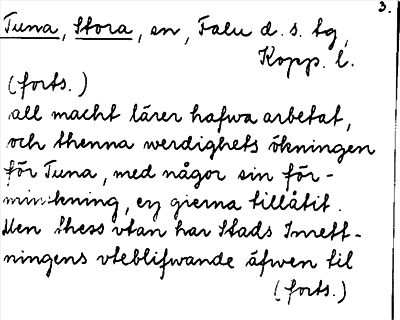 3.
Tuna, Stora, en, Falu d. s. tg,
Kopp. l.
(forts.)
all macht lärer hafwa arbetat,
och thenna werdighets ökningen
för Tuna, med någor sin för-
minskning, ey gierna tillåtit.
Men thess vtan har Stads Inrett-
ningens vteblifwande äfwen til
(forts.)